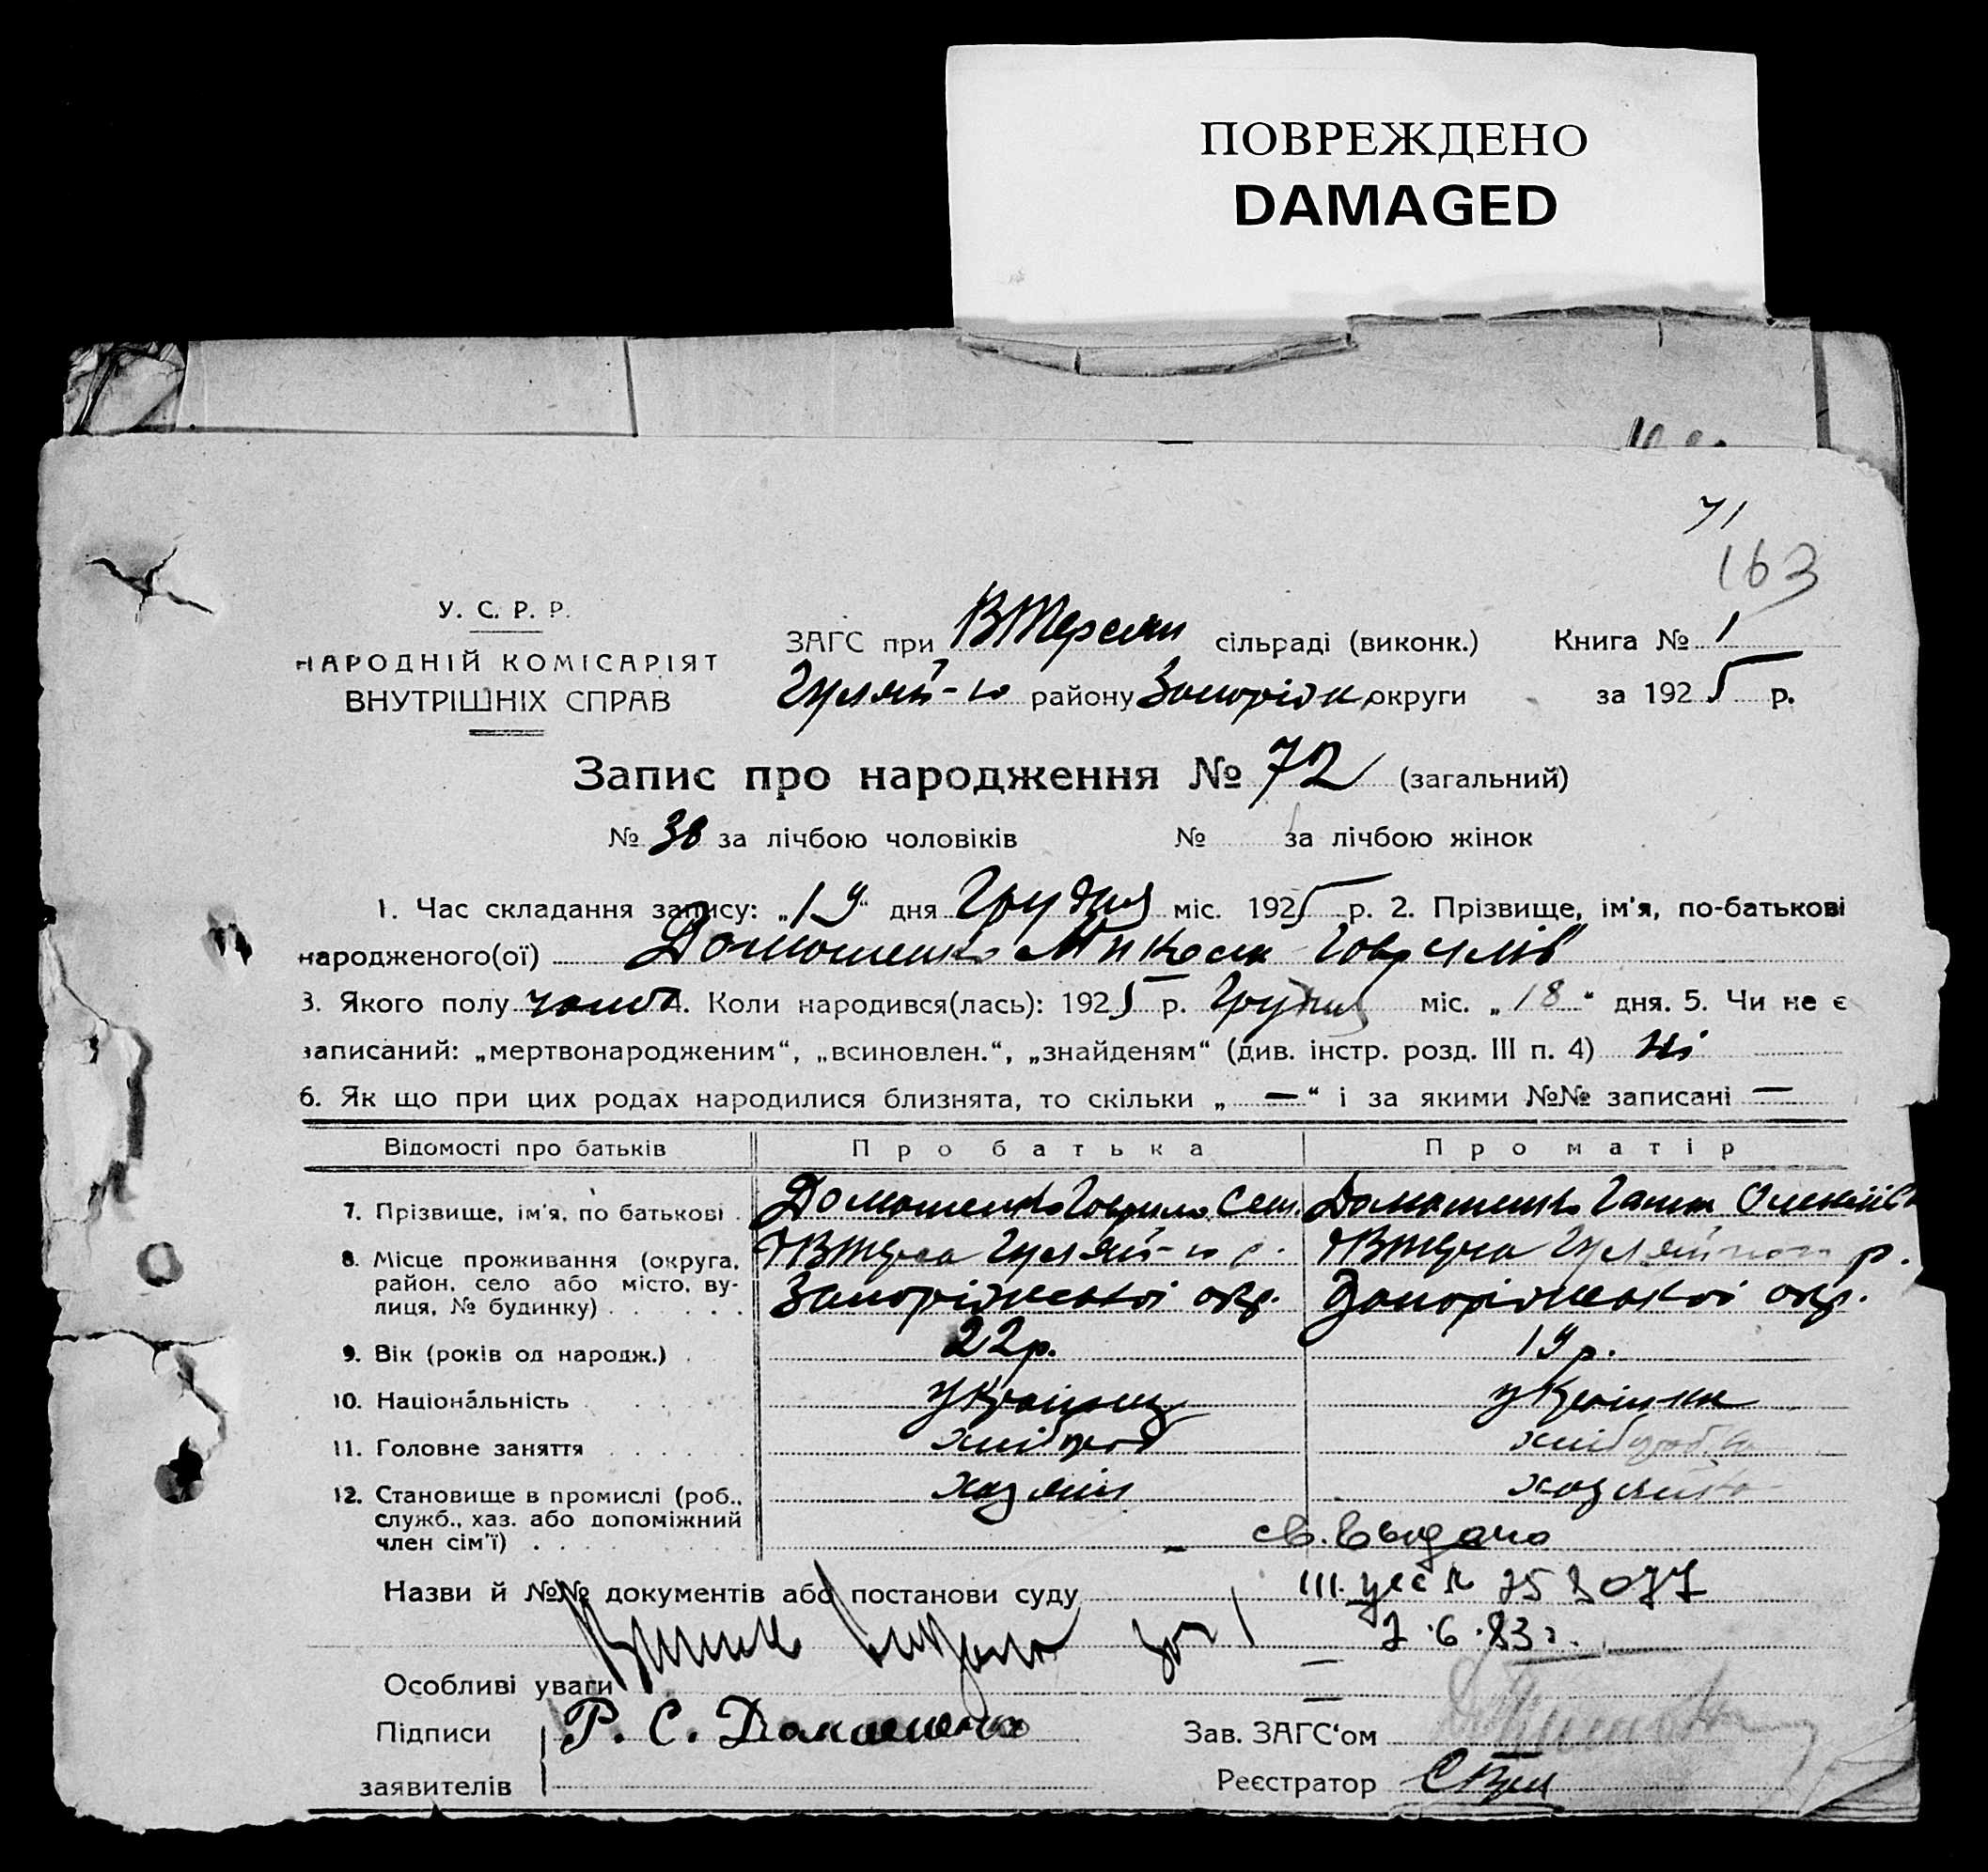 ПОВРЕЖДЕНО
DAMAGED
71
163
У. С. Р. Р.
НАРОДНІЙ КОМІСАРІЯТ
ВНУТРІШНІХ СПРАВ
ЗАГС при ВТерсян сільраді (виконк.) Книга № 1
Гуляй- го району Запоріж округи за 1925 р.
Запис про народження № 72 (загальний)
№ 38 за лічбою чоловіків № за лічбою жінок
1. Час складання запису: „19“ дня Грудня міс. 1925 р. 2. Прізвище, ім'я, по-батькові
народженого(ої) Домашенко Микола Гаврилів
3. Якого полу 4. Коли народився(лась): 1925 р. Грудня міс. „18“ дня. 5. Чи не є
записаний: „мертвонародженим“, „всиновлен.“, „знайденям“ (див. інстр. розд. III п. 4) ні
6. Як що при цих родах народилися близнята, то скільки „—“ і за якими №№ записані —
Відомості про батьків Про батька Про матір
7. Прізвище, ім'я, по батькові Домашенко Гаврило Сем. Домашенко Ганна Олексіїв
8. Місце проживання (округа, район, село або місто, вулиця, № будинку) Запоріжської окр. Запоріжської окр.
9. Вік (років од народж.) 22 р. 19 р.
10. Національність українець українка
11. Головне заняття хлібороб хлібороб
12. Становище в промислі (роб., служб., хаз. або допоміжний член сім'ї) хазяїн хазяйка
св. выдано
Назви й №№ документів або постанови суду III. № 258077
7.6.83 г.
Особливі уваги —
Підписи Г. С. Домашенко Зав. ЗАГС'ом
заявителів Реєстратор